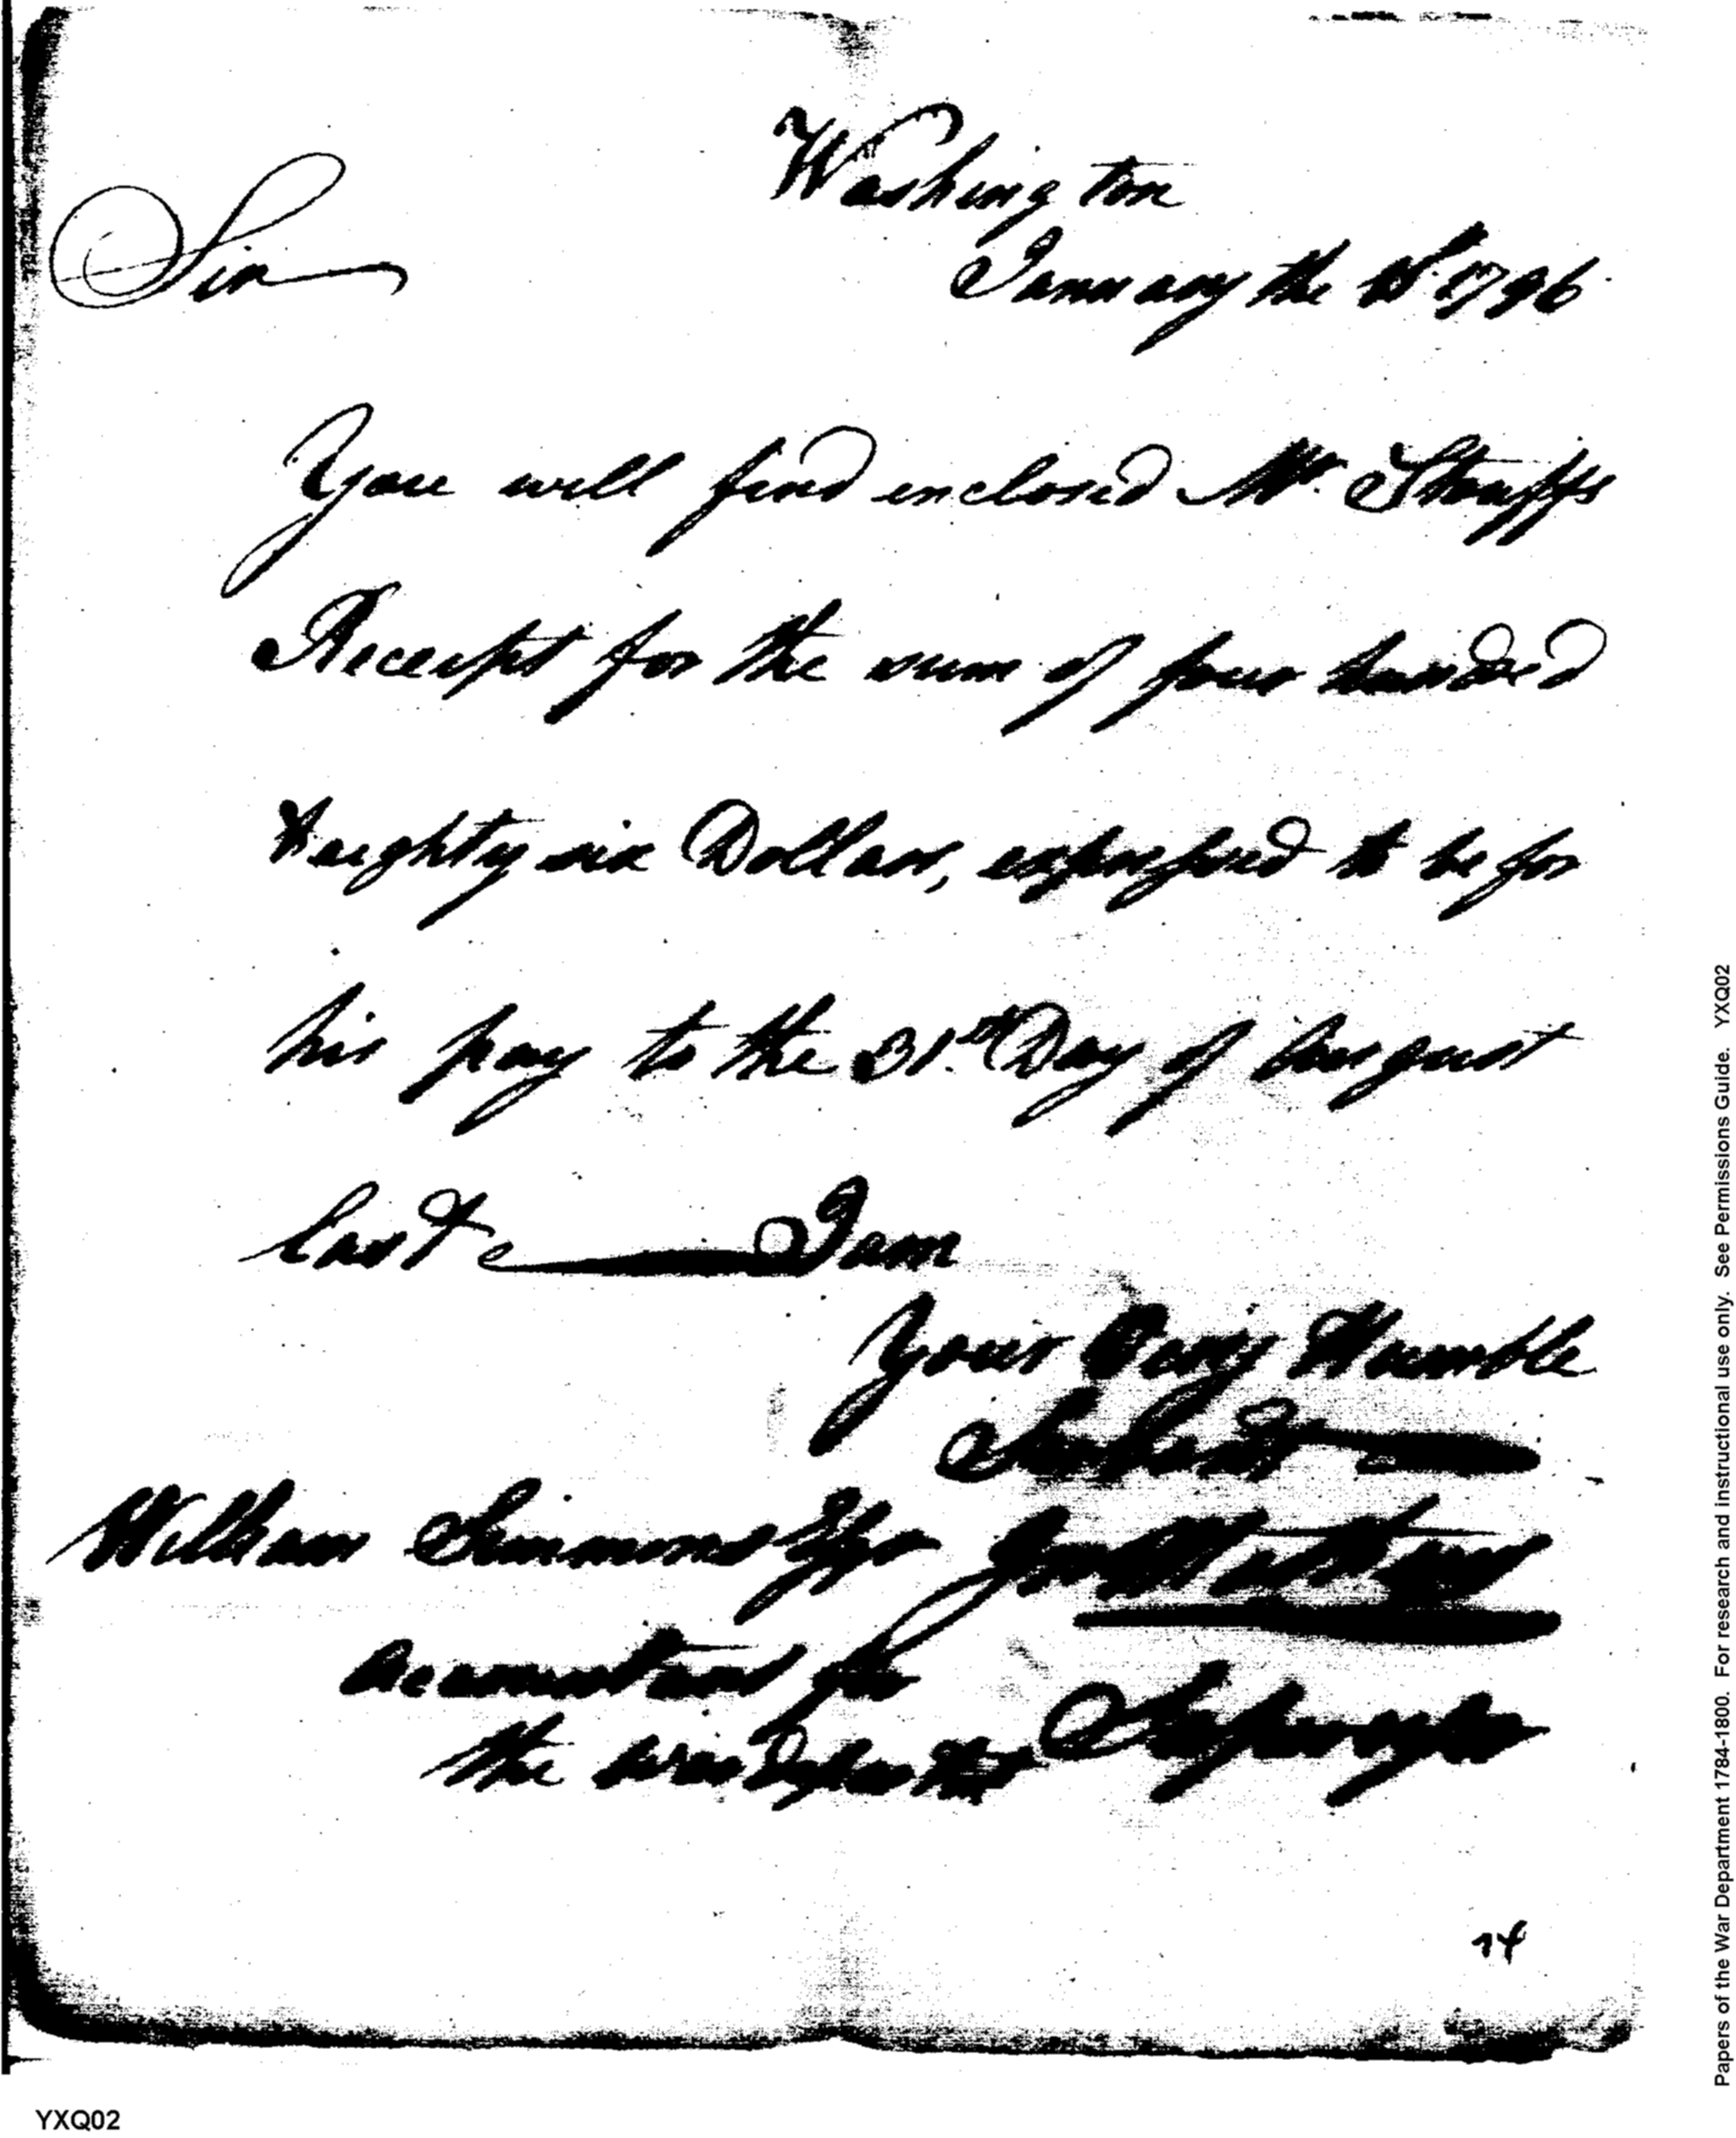 Washington
Sir
January the 18 1796
You will find enclosed Mr. Straffs
Receipt for the sum of four hunded
& eighty six Dollars, expressed to be for
his pay to the 31.st Day of August
Last I am
Your Very Humble
Servt
William Simmons Esqr
Accountant for
the war Departmt
14
YXQ02
Papers of the War Department 1784-1800. For research and instructional use only. See Permissions Guide. YXQ02